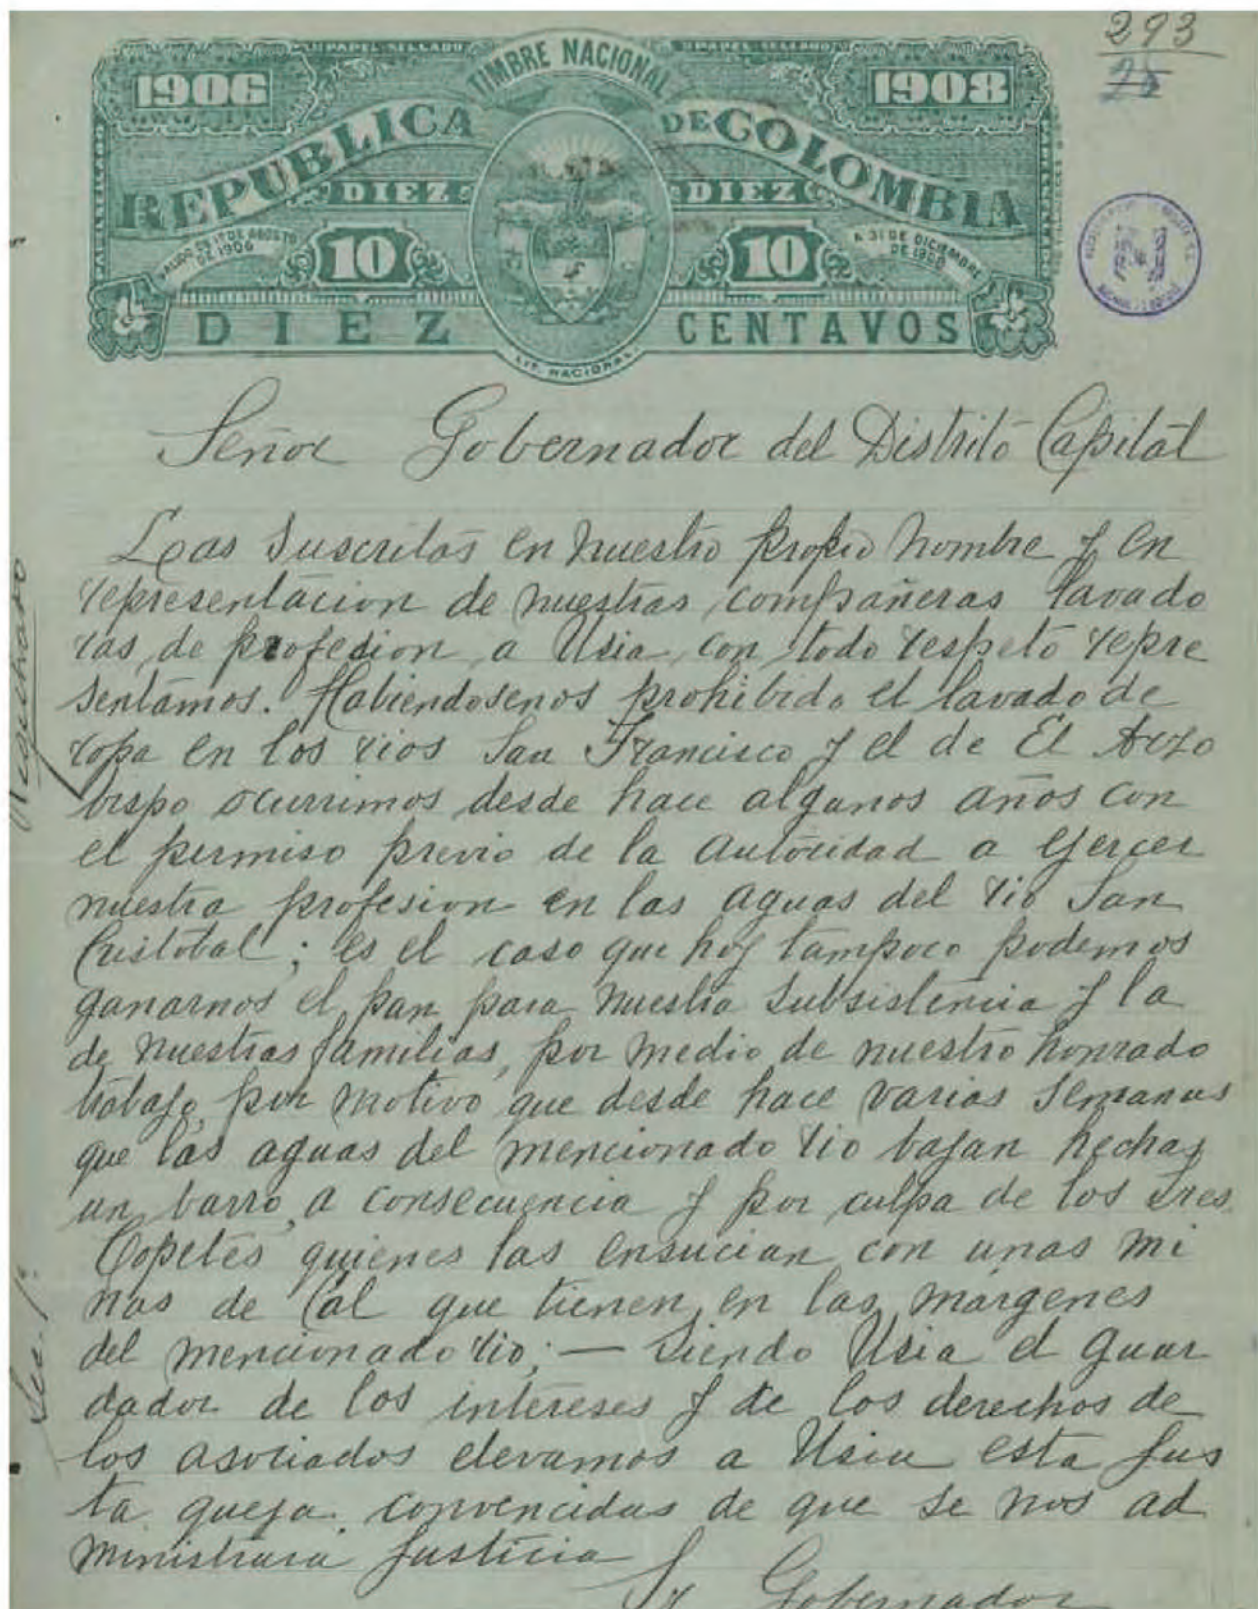 293
25
PAPEL SELLADO
TIMBRE NACIONAL
PAPEL SELLADO
1906
1908
REPUBLICA DE COLOMBIA
DIEZ
DIEZ
VALIDO DE 1º DE AGOSTO DE 1906
A 31 DE DICIEMBRE DE 1908
10
10
DIEZ CENTAVOS
LIT. NACIONAL.
Señor Gobernador del Distrito Capital
Las Suscritas en nuestro propio nombre y en
representacion de nuestras compañeras lavado
ras de profesion a Usia con todo respeto repre
sentamos. Habiendosenos prohibido el lavado de
ropa en los rios San Francisco y el de El Arzo
bispo ocurrimos desde hace algunos años con
el permiso previo de la autoridad a ejercer
nuestra profesion en las aguas del rio San
Cristobal; es el caso que hoy tampoco podemos
ganarnos el pan para nuestra subsistencia y la
de nuestras familias, por medio de nuestro honrado
trabajo, por motivo que desde hace varias semanas
que las aguas del mencionado rio bajan hechas
un barro, a consecuencia y por culpa de los Sres
Copetes quienes las ensucian con unas mi
nas de Cal que tienen en las márgenes
del mencionado rio; — Siendo Usia el guar
dador de los intereses y de los derechos de
los asociados elevamos a Usia esta jus
ta queja convencidas de que se nos ad
ministrara justicia
Sr Gobernador